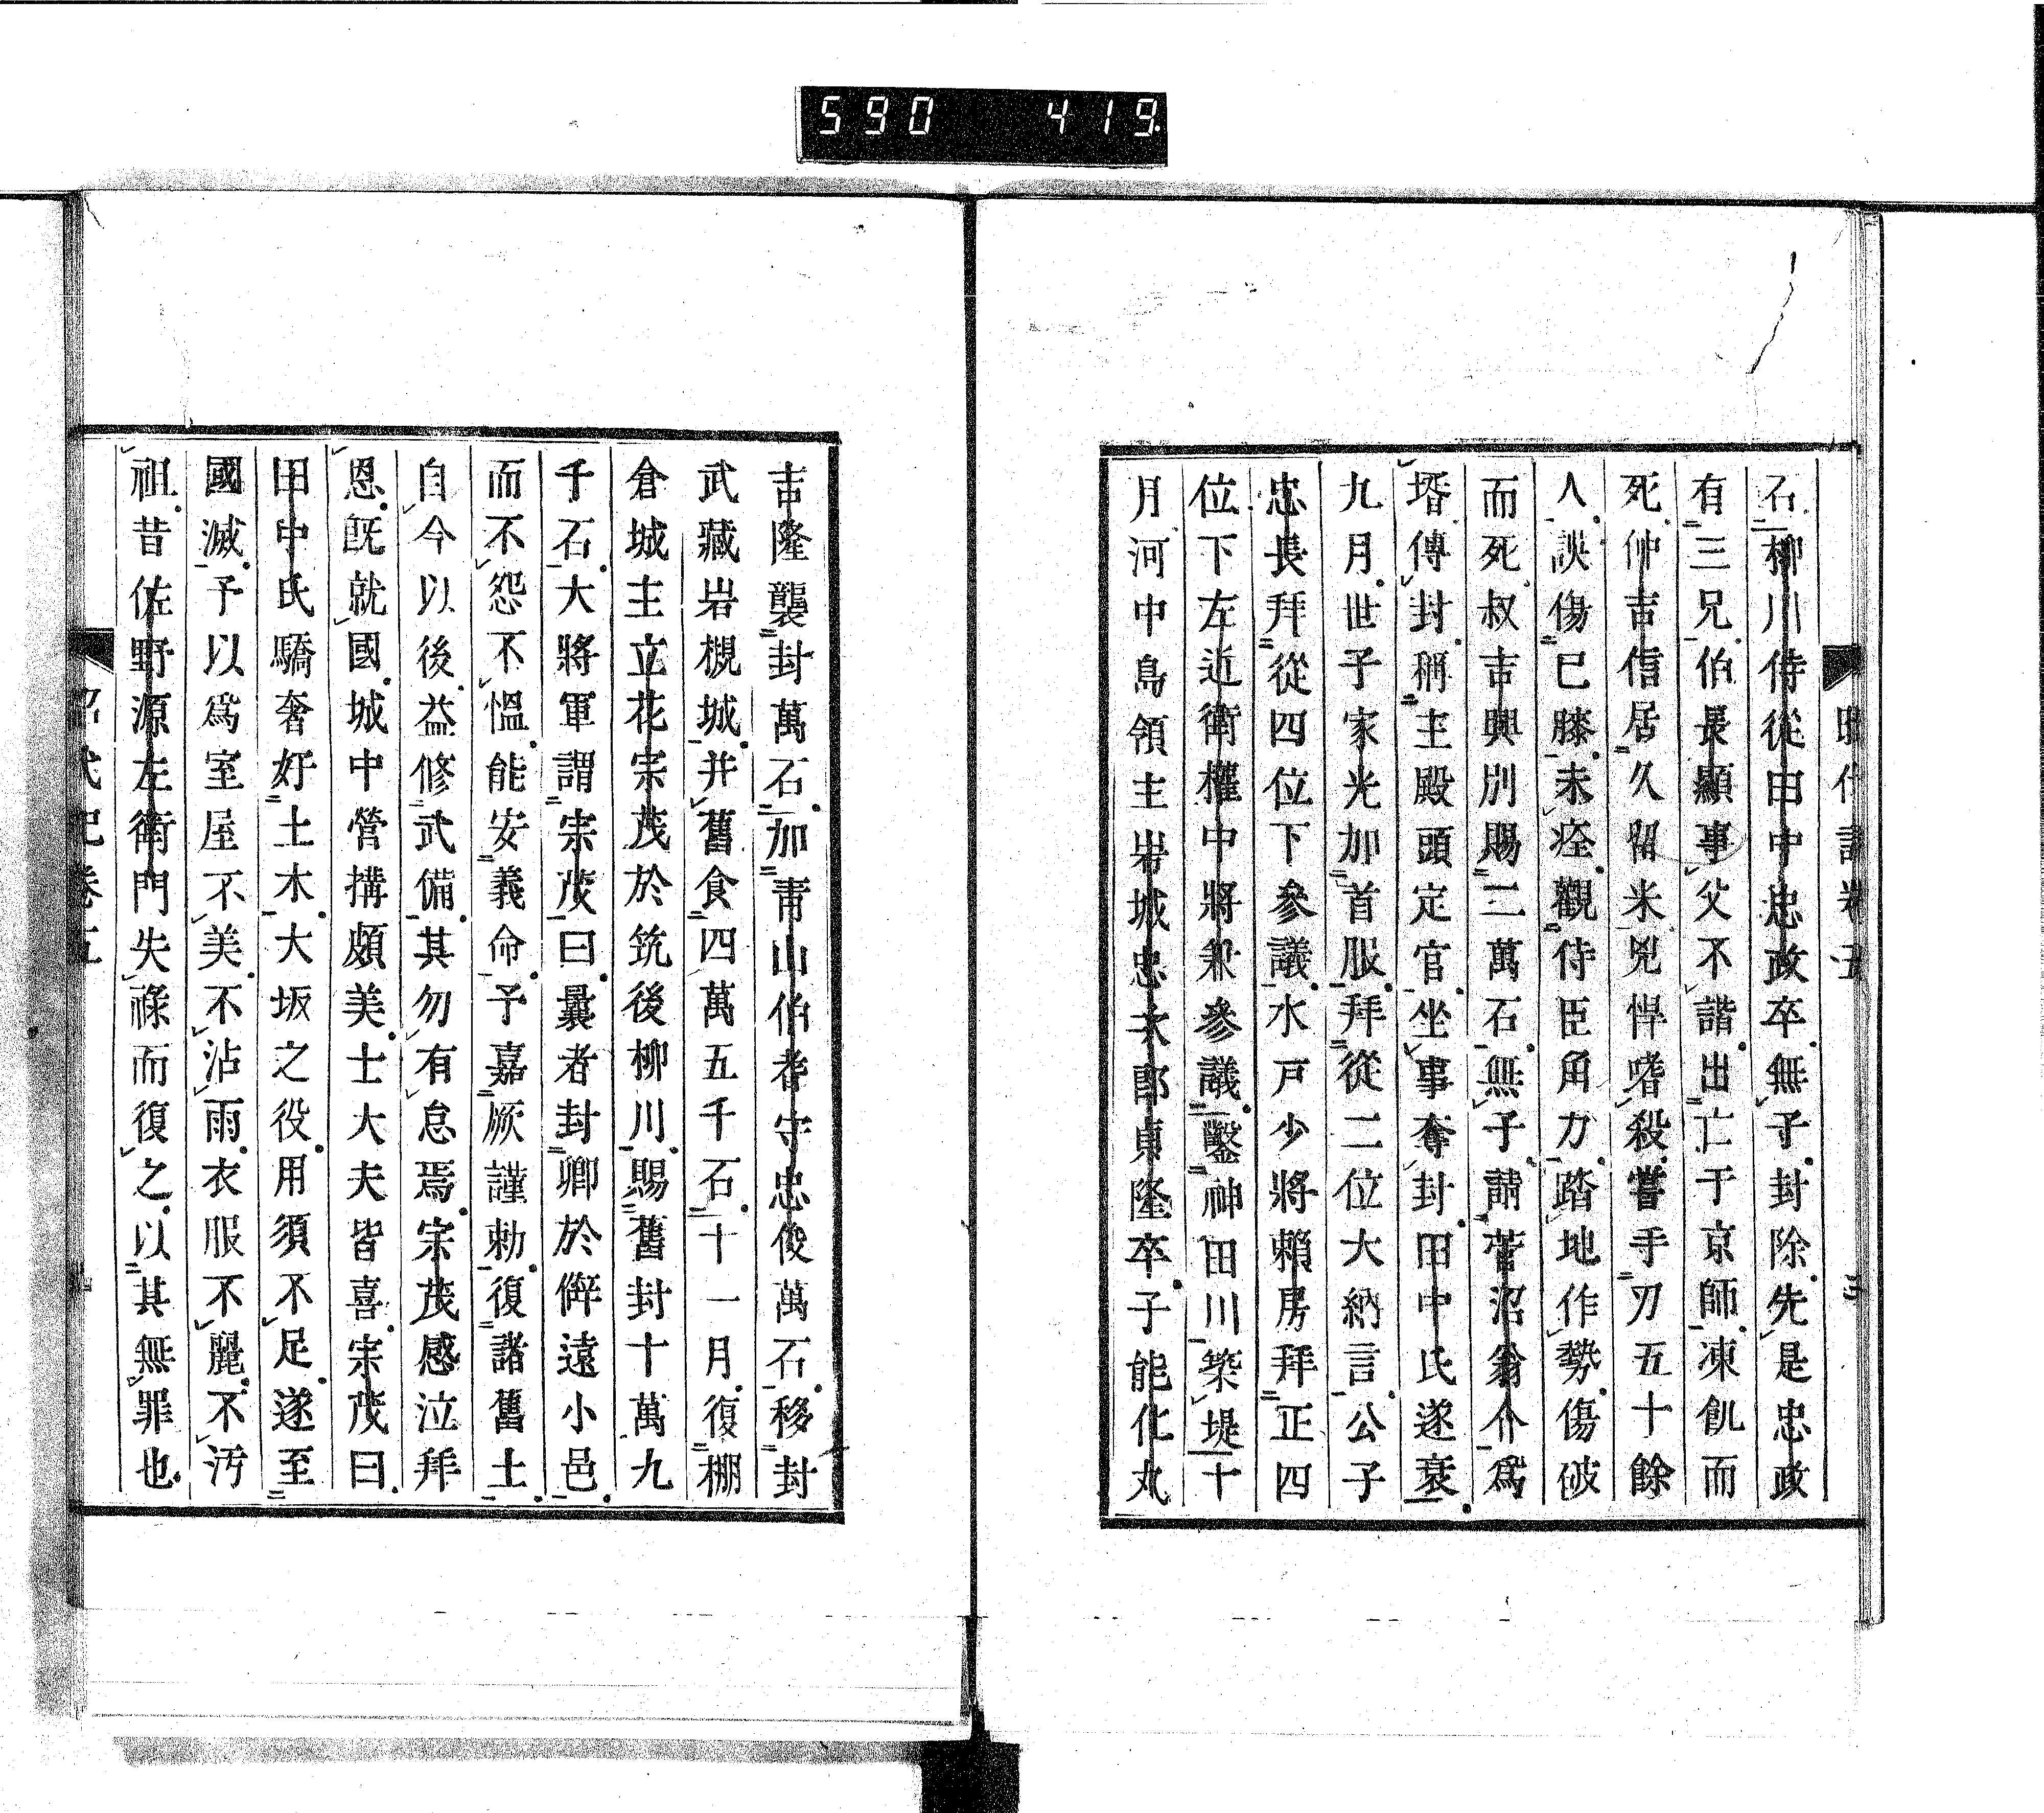 590 419
石柳川侍從田中忠政卒無子封除先是忠政
有三兄伯長顯事父不諧出亡于京師凍飢而
死仲吉信居久留米兇悍嗜殺嘗手刃五十餘
人誤傷已膝未痊觀侍臣角力踏地作勢傷破
而死叔吉興別賜二萬石無子請菅沼翁介爲
壻傳封稱主殿頭定官坐事奪封田中氏遂衰
九月世子家光加首服拜從二位大納言公子
忠長拜從四位下參議水戸少將賴房拜正四
位下左近衛權中將兼參議鑿神田川築堤十
月河中島領主岩城忠次郎貞隆卒子能化丸
吉隆襲封萬石加靑山伯耆守忠俊萬石移封
武藏岩槻城并舊食四萬五千石十一月復棚
倉城主立花宗茂於筑後柳川賜舊封十萬九
千石大將軍謂宗茂曰曩者封卿於僻遠小邑
而不怨不慍能安義命予嘉厥謹勅復諸舊土
自今以後益修武備其勿有怠焉宗茂感泣拜
恩既就國城中營搆頗美士大夫皆喜宗茂曰
田中氏驕奢好土木大坂之役用須不足遂至
國滅予以爲室屋不美不沾雨衣服不麗不汚
祖昔佐野源左衛門失祿而復之以其無罪也